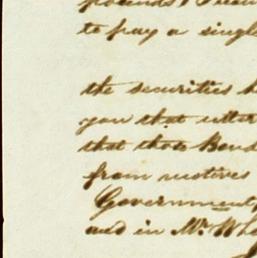 pounds
to pay a single
the securities
you that utter
that those Bonds
from motives
Government
and in Mr.